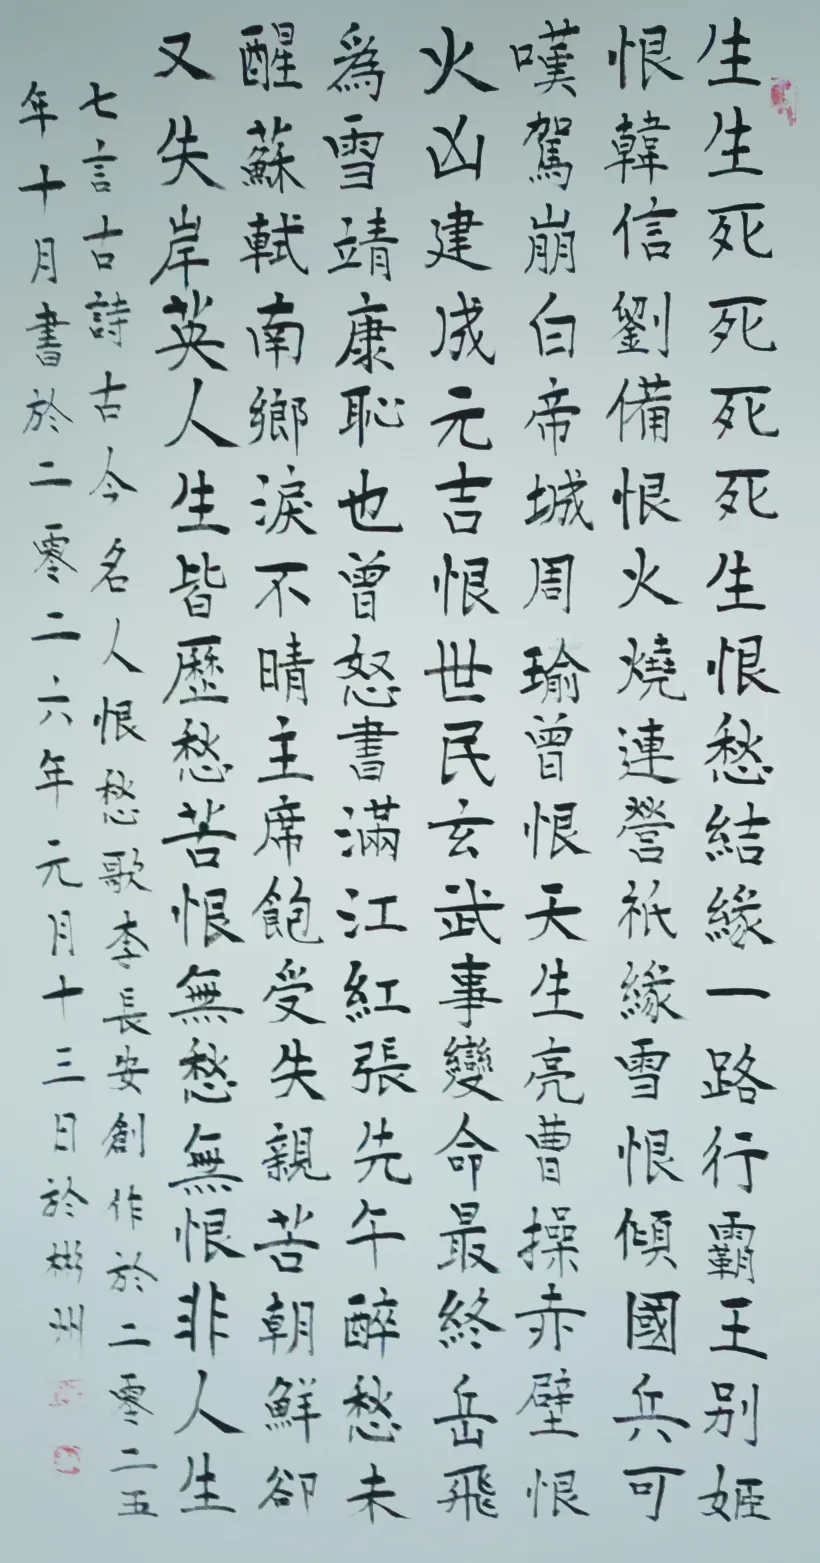 生生死死死死生恨愁結緣一路行霸王别姬
恨韓信劉備恨火燒連營祇緣雪恨傾國兵可
嘆駕崩白帝城周瑜曾恨天生亮曹操赤壁恨
火凶建成元吉恨世民玄武事變命最終岳飛
為雪靖康恥也曾怒書滿江紅張先午醉愁未
醒蘇軾南鄉淚不晴主席飽受失親苦朝鮮卻
又失岸英人生皆歷愁苦恨無愁無恨非人生
七言古詩古今名人恨愁歌李長安創作於二零二五
年十月書於二零二六年元月十三日於彬州